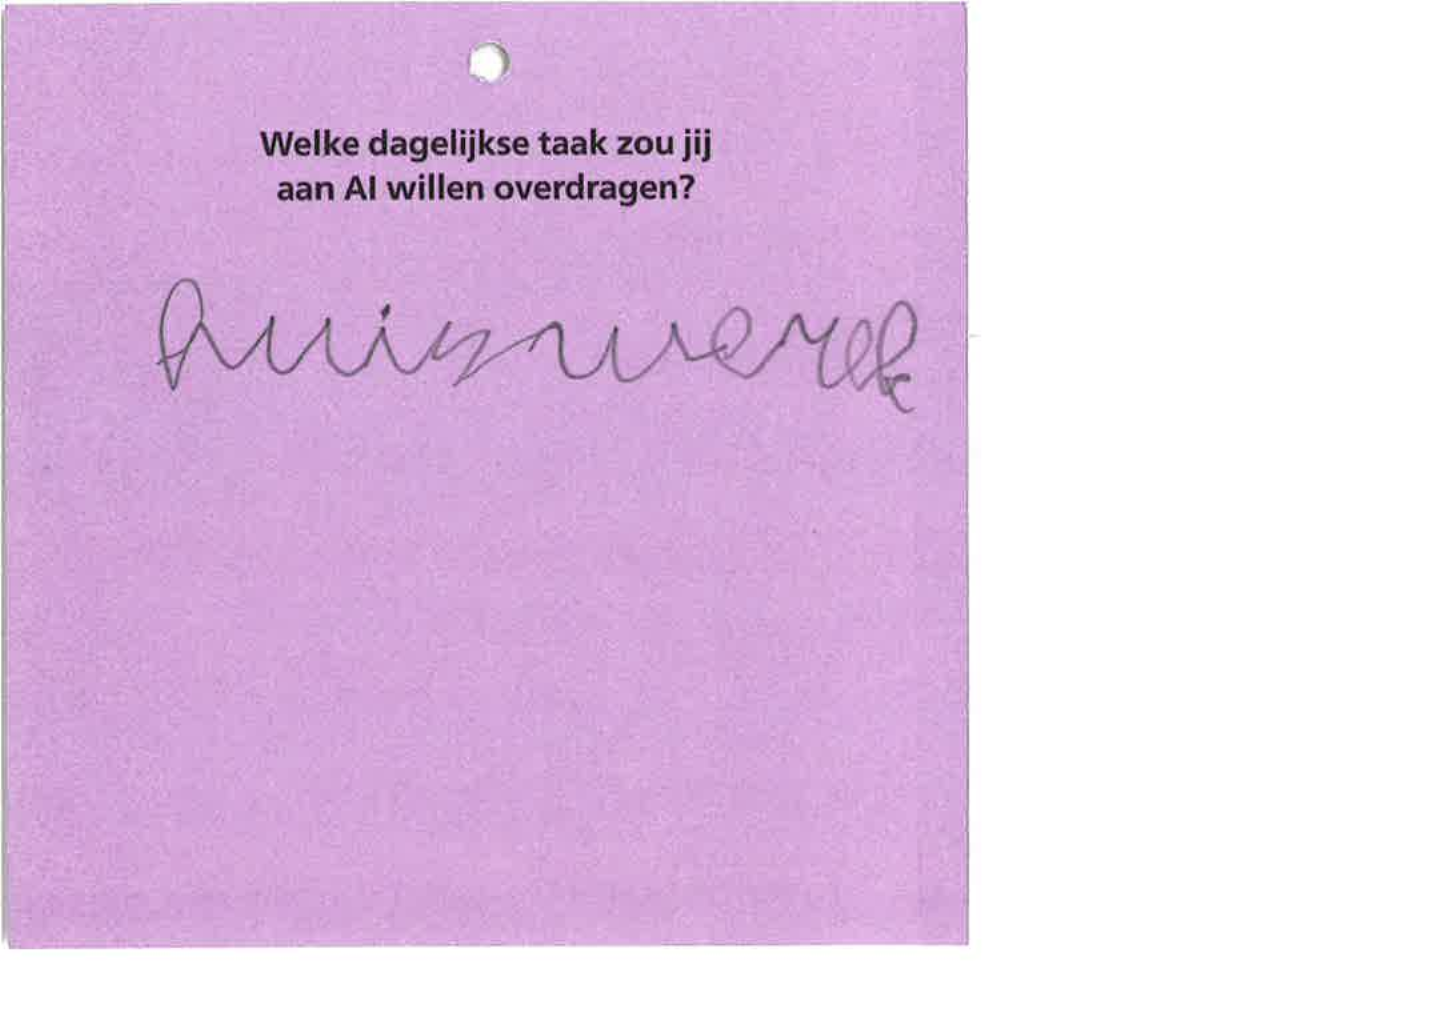 Welke dagelijkse taak zou jij
aan AI willen overdragen?
huiswerk